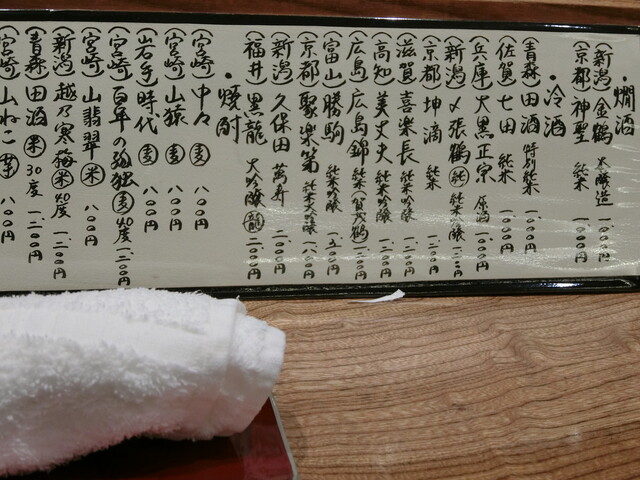 ・燗酒
(新潟)金鶴 本醸造 一.〇〇〇円
(京都)神聖 純米 一.〇〇〇円
・冷酒
(青森)田酒 特別純米 一.〇〇〇円
(佐賀)七田 純米 一.〇〇〇円
(兵庫)大黒正宗 原酒 一.〇〇〇円
(新潟)〆張鶴 純 純米吟醸 一.二〇〇円
(京都)坤滴 純米 一.二〇〇円
(滋賀)喜楽長 純米吟醸 一.二〇〇円
(高知)美丈夫 純米吟醸 一.二〇〇円
(広島)広島錦 純米
(富山)勝駒 純米吟醸 一.五〇〇円
(京都)聚楽第 純米大吟醸 一.八〇〇円
(新潟)久保田 萬寿 二.〇〇〇円
(福井)黒龍 大吟醸 龍 二.〇〇〇円
・焼酎
(宮崎)中々 麦 八〇〇円
(宮崎)山猿 麦 八〇〇円
(岩手)時代 麦 八〇〇円
(宮崎)百年の孤独 麦 40度 一.二〇〇円
(宮崎)山翡翠 米 八〇〇円
(新潟)越乃寒梅 米 40度 一.二〇〇円
(青森)田酒 米 30度 一.二〇〇円
(宮崎)山ねこ 芋 八〇〇円